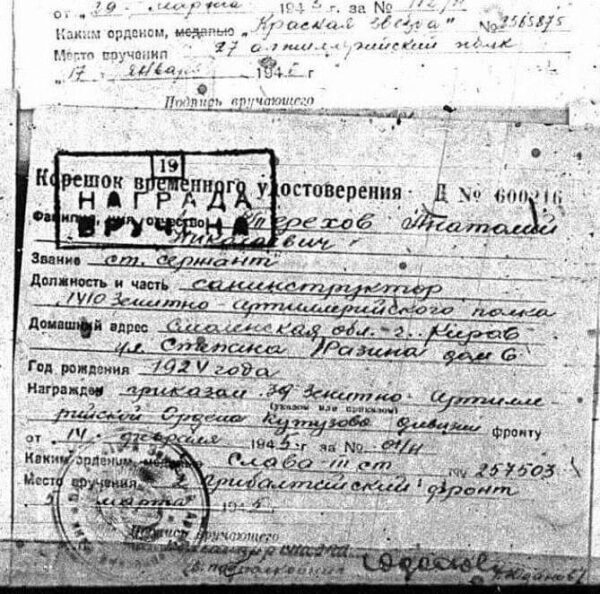 от „29“ марта 194 г. за №
Каким орденом, медалью „Красная звезда“ № 2565875
Место вручения 27 артиллерийский полк
„17“ января 194 г
Подпись вручающего
19
НАГРАДА
ВРУЧЕНА
Корешок временного удостоверения Д № 600216
Фамилия, имя, отчество Терехов Анатолий
Николаевич
Звание ст. сержант
Должность и часть санинструктор
1410 Зенитно-артиллерийского полка
Домашний адрес Смоленская обл. г. Киров
ул. Степана Разина дом 6
Год рождения 1924 года
Награжден приказом 39 Зенитно-артилле-
(указом или приказом)
рийской Ордена Кутузова дивизии фронту
от „14“ февраля 1945 г. за № 01/н
Каким орденом, медалью Слава III ст № 257503
Место вручения Прибалтийский фронт
„5“ марта 1945
Подпись вручающего